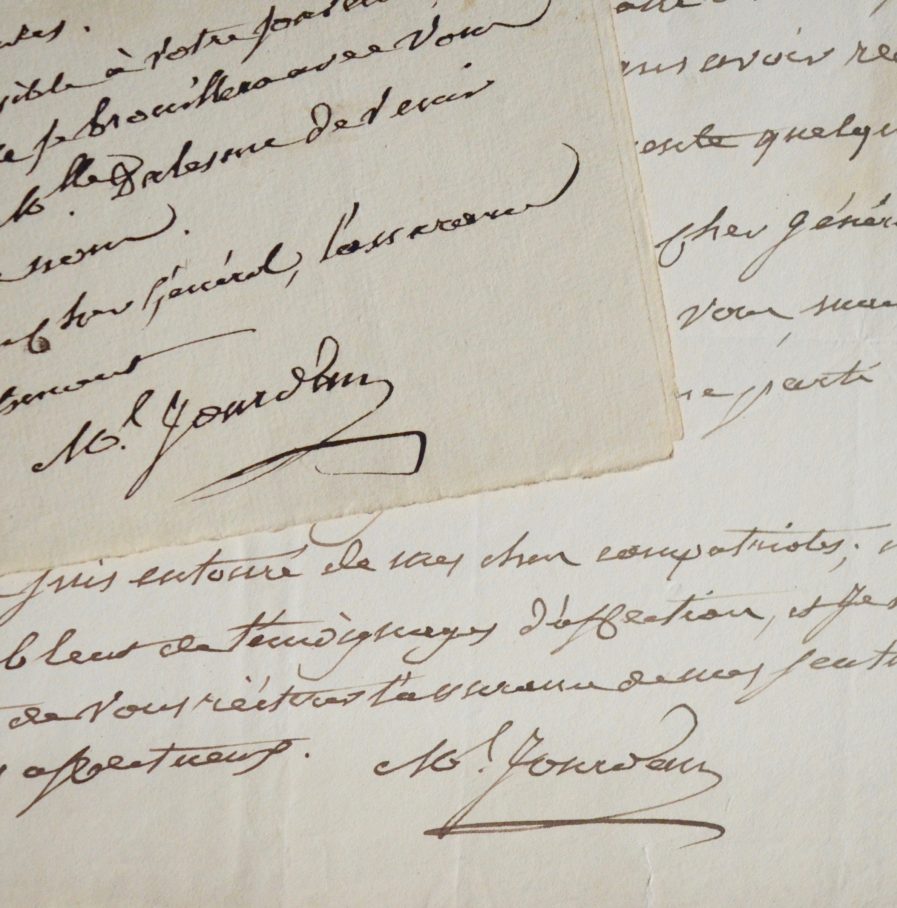 sible à votre
je brouillera avec vous
Mlle Dalesme de venir
nom.
cher Général, l'assurance
Ml. Jourdan
sans avoir
reste quelqu
cher génér
vous
parti
suis entouré de mes chers compatriotes;
blent de témoignages d'affection, et je
de vous réitérer l'assurance de mes senti
affectueux.
Ml. Jourdan